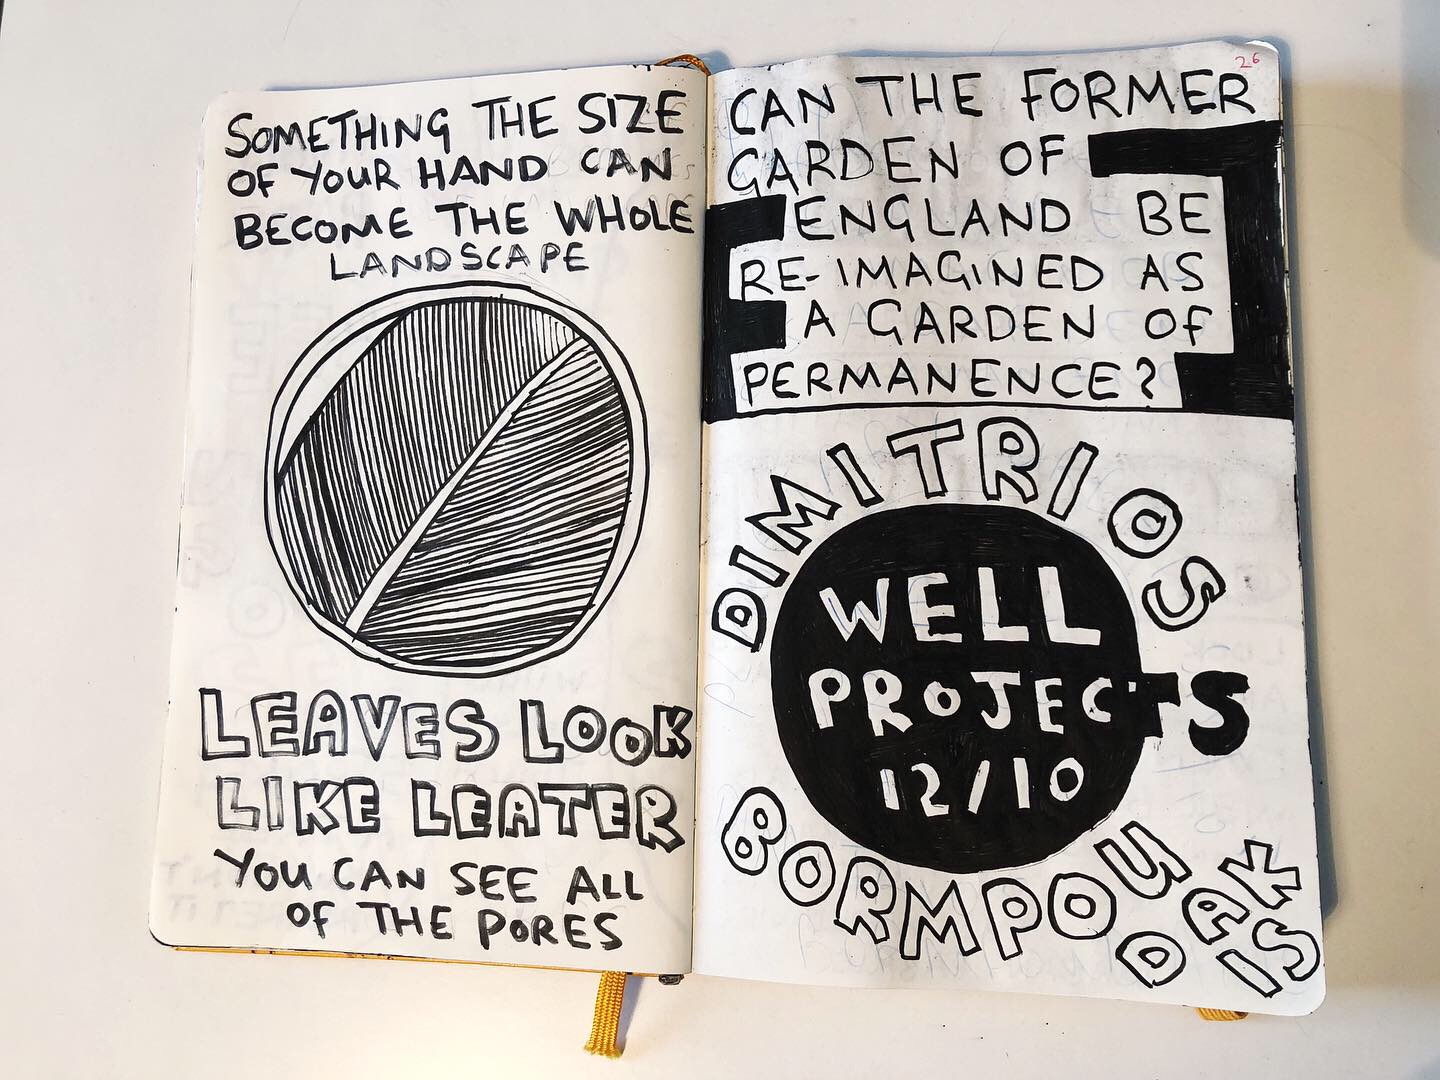 SOMETHING THE SIZE
OF YOUR HAND CAN
BECOME THE WHOLE
LANDSCAPE
LEAVES LOOK
LIKE LEATER
YOU CAN SEE ALL
OF THE PORES
26
CAN THE FORMER
GARDEN OF
ENGLAND BE
RE-IMAGINED AS
A GARDEN OF
PERMANENCE?
DIMITRIOS
WELL
PROJECTS
12/10
BORMPOUDAKIS